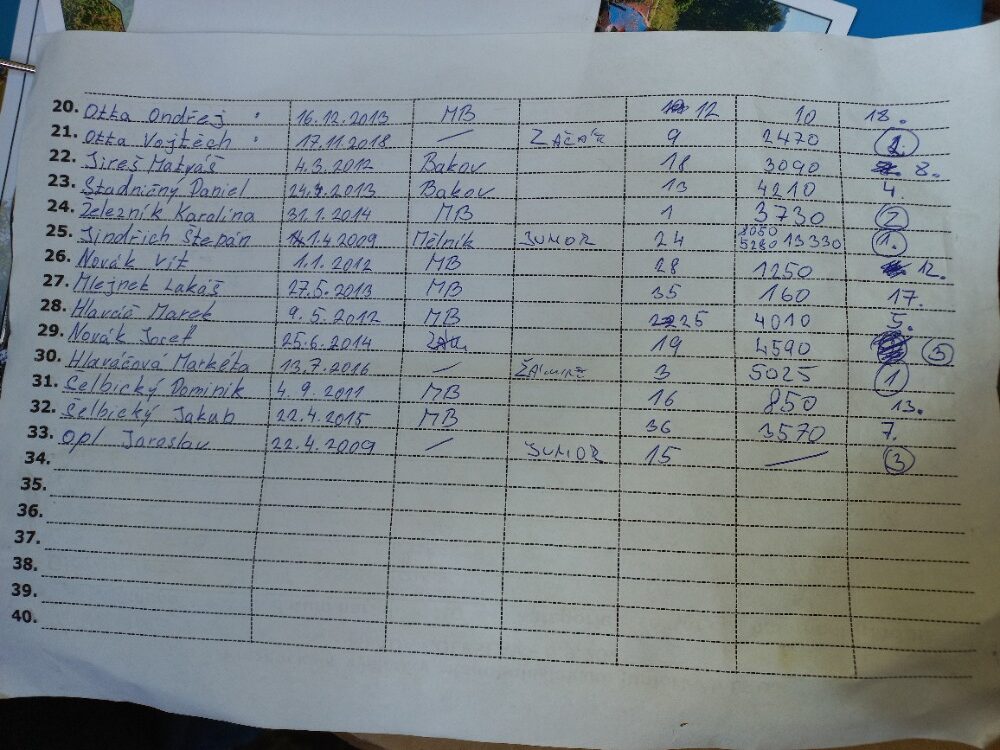 20. Otta Ondřej 16.12.2013 MB 12 10 18.
21. Otta Vojtěch 17.11.2018 / ZAČÁTEČ 9 2470 2.
22. Jireš Matyáš 4.3.2012 Bakov 18 3090 8.
23. Stadničný Daniel 24.7.2013 Bakov 13 4210 4.
24. Železník Karolina 31.1.2014 MB 1 3730 2
25. Jindřich Štěpán 1.4.2009 Mělník JUNIOR 24 8050 5280 13330 1.
26. Novák Vít 1.1.2012 MB 28 1250 12.
27. Mlejnek Lukáš 27.5.2013 MB 35 160 17.
28. Hlaváč Marek 9.5.2012 MB 25 4010 5.
29. Novák Josef 25.6.2014 19 4590 3
30. Hlaváčová Markéta 13.7.2016 / 3 5025 1
31. Selbický Dominik 4.9.2011 MB 16 850 13.
32. Šelbický Jakub 22.4.2015 MB 36 3570 7.
33. Opl Jaroslav 22.4.2009 / JUNIOR 15 / 3
34.
35.
36.
37.
38.
39.
40.